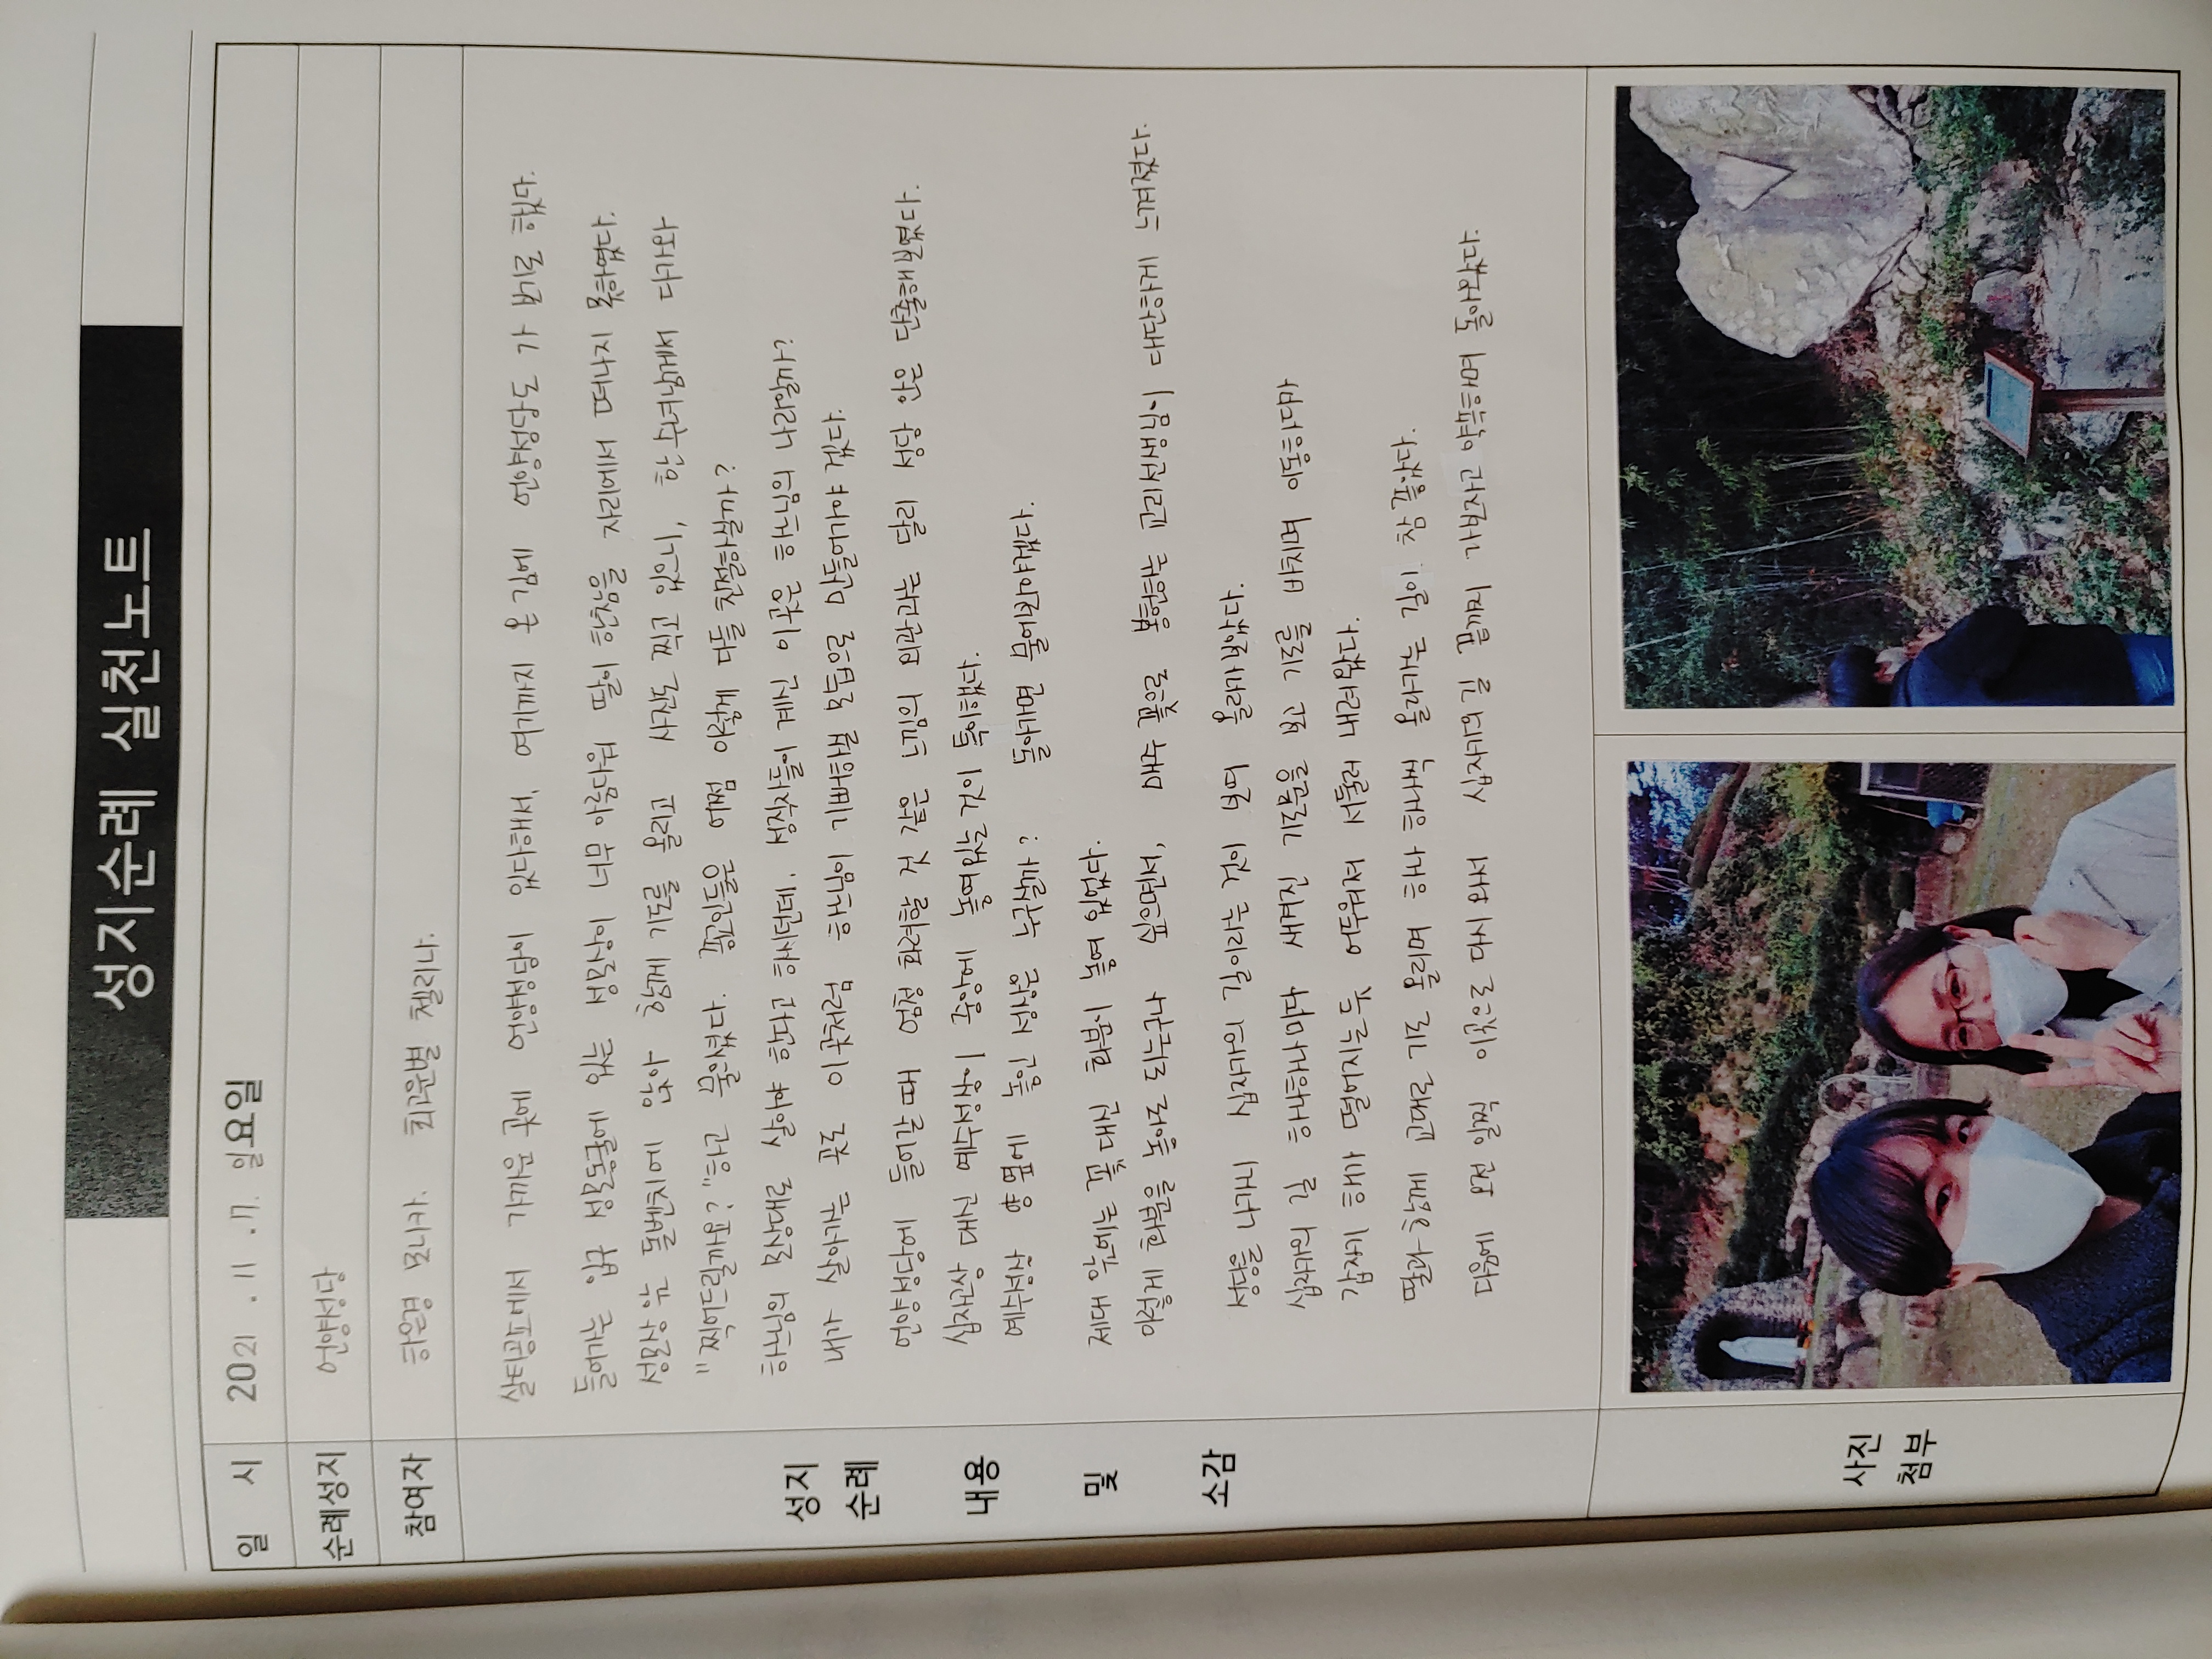 성지순례 실천노트
일 시 2021. 11. 7. 일요일
순례성지 언양성당
참여자 하은경 모니카. 최윤별 첼리나.
성지
순례
내용
및
소감
살티공소에서 가까운 곳에 언양성당이 있다해서, 여기까지 온 김에 언양성당도 가 보기로 했다.
들어가는 입구 성모동굴에 있는 성모상이 너무 아름다워 딸이 한참을 자리에서 떠나지 못하였다.
성모상 앞 돌벤치에 앉아 함께 기도를 올리고 사진도 찍고 있으니, 한 수녀님께서 다가와
"찍어드릴까요?"하고 물으셨다. 종교인들은 어쩜 이렇게 다들 친절하실까?
하느님의 모상대로 살아야 한다고 하시던데, 성직자들이 계신 이곳은 하느님의 나라일까?
내가 살아가는 곳도 이곳처럼 하느님이 기뻐해하실 모습으로 만들어가야겠다.
언양성당에 들어갈 때 엄청 화려할 것 같은 느낌의 외관과는 달리 성당 안은 단출해보였다.
십자고상 대신 예수성상이 중앙에 놓여있는 것이 특이했다.
예수성상 양 옆에 놓인 성상은 누구실까? 돌아가면 물어봐야겠다.
제대 앞에는 꽃 대신 화분이 놓여 있었다.
아 저렇게 화분을 놓아도 되는구나 싶으면서, 매주 꽃으로 봉헌하는 교리선생님이 대단하게 느껴졌다.
성당을 나와서 십자가의 길이라는 것이 있어 올라가보았다.
십자가의 길 하나하나마다 새겨진 기도문을 읽고 기도를 바치며 이동하다보니
갑자기 해가 떨어지는 듯 어두워져 서둘러 내려왔다.
딸과 함께 교대로 기도 올리며 하나하나씩 올라가는 길이 참 좋았다.
다음에 오전 일찍 이곳으로 다시 와서 십자가의 길 끝까지 가보자고 약속하며 돌아왔다.
사진
첨부